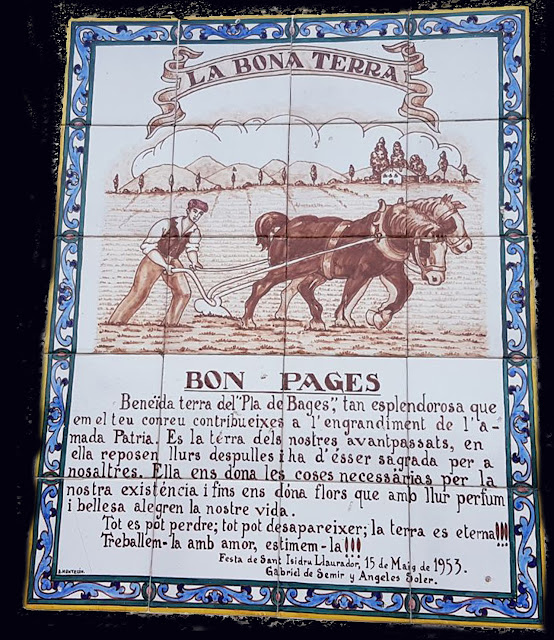 LA BONA TERRA
BON PAGES
Beneïda terra del "Pla de Bages", tan esplendorosa que
em el teu conreu contribueixes a l'engrandiment de l'a-
mada Patria. Es la terra dels nostres avantpassats, en
ella reposen llurs despulles i ha d'ésser sagrada per a
nosaltres. Ella ens dona les coses necessárias per la
nostra existéncia i fins ens dóna flors que amb llur perfum
i bellesa alegren la nostre vida.
Tot es pot perdre; tot pot desapareixer; la terra es eterna!!!
Treballem-la amb amor, estimem-la!!!
Festa de Sant Isidru Llaurador, 15 de Maig de 1953.
Gabriel de Semir y Angeles Soler.